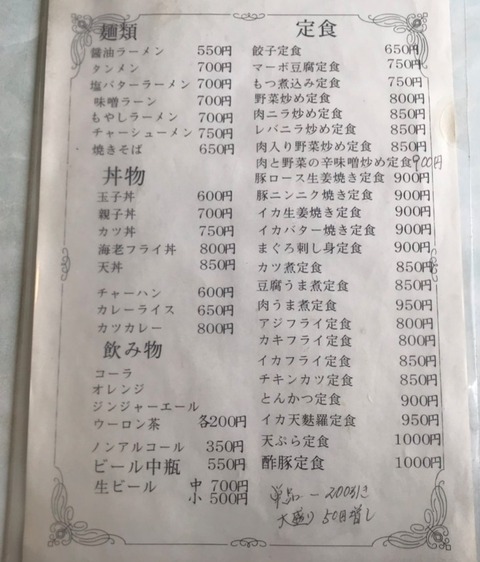 麺類
醤油ラーメン 550円
タンメン 700円
塩バターラーメン 700円
味噌ラーン 700円
もやしラーメン 700円
チャーシューメン 750円
焼きそば 650円
丼物
玉子丼 600円
親子丼 700円
カツ丼 750円
海老フライ丼 800円
天丼 850円
チャーハン 600円
カレーライス 650円
カツカレー 800円
飲み物
コーラ
オレンジ
ジンジャーエール
ウーロン茶 各200円
ノンアルコール 350円
ビール中瓶 550円
生ビール 中 700円
小 500円
定食
餃子定食 650円
マーボ豆腐定食 750円
もつ煮込み定食 750円
野菜炒め定食 800円
肉ニラ炒め定食 850円
レバニラ炒め定食 850円
肉入り野菜炒め定食 850円
肉と野菜の辛味噌炒め定食 900円
豚ロース生姜焼き定食 900円
豚ニンニク焼き定食 900円
イカ生姜焼き定食 900円
イカバター焼き定食 900円
まぐろ刺し身定食 900円
カツ煮定食 850円
豆腐うま煮定食 850円
肉うま煮定食 950円
アジフライ定食 800円
カキフライ定食 800円
イカフライ定食 850円
チキンカツ定食 850円
とんかつ定食 900円
イカ天麩羅定食 950円
天ぷら定食 1000円
酢豚定食 1000円
単品 ー200引き
大盛り 50円増し